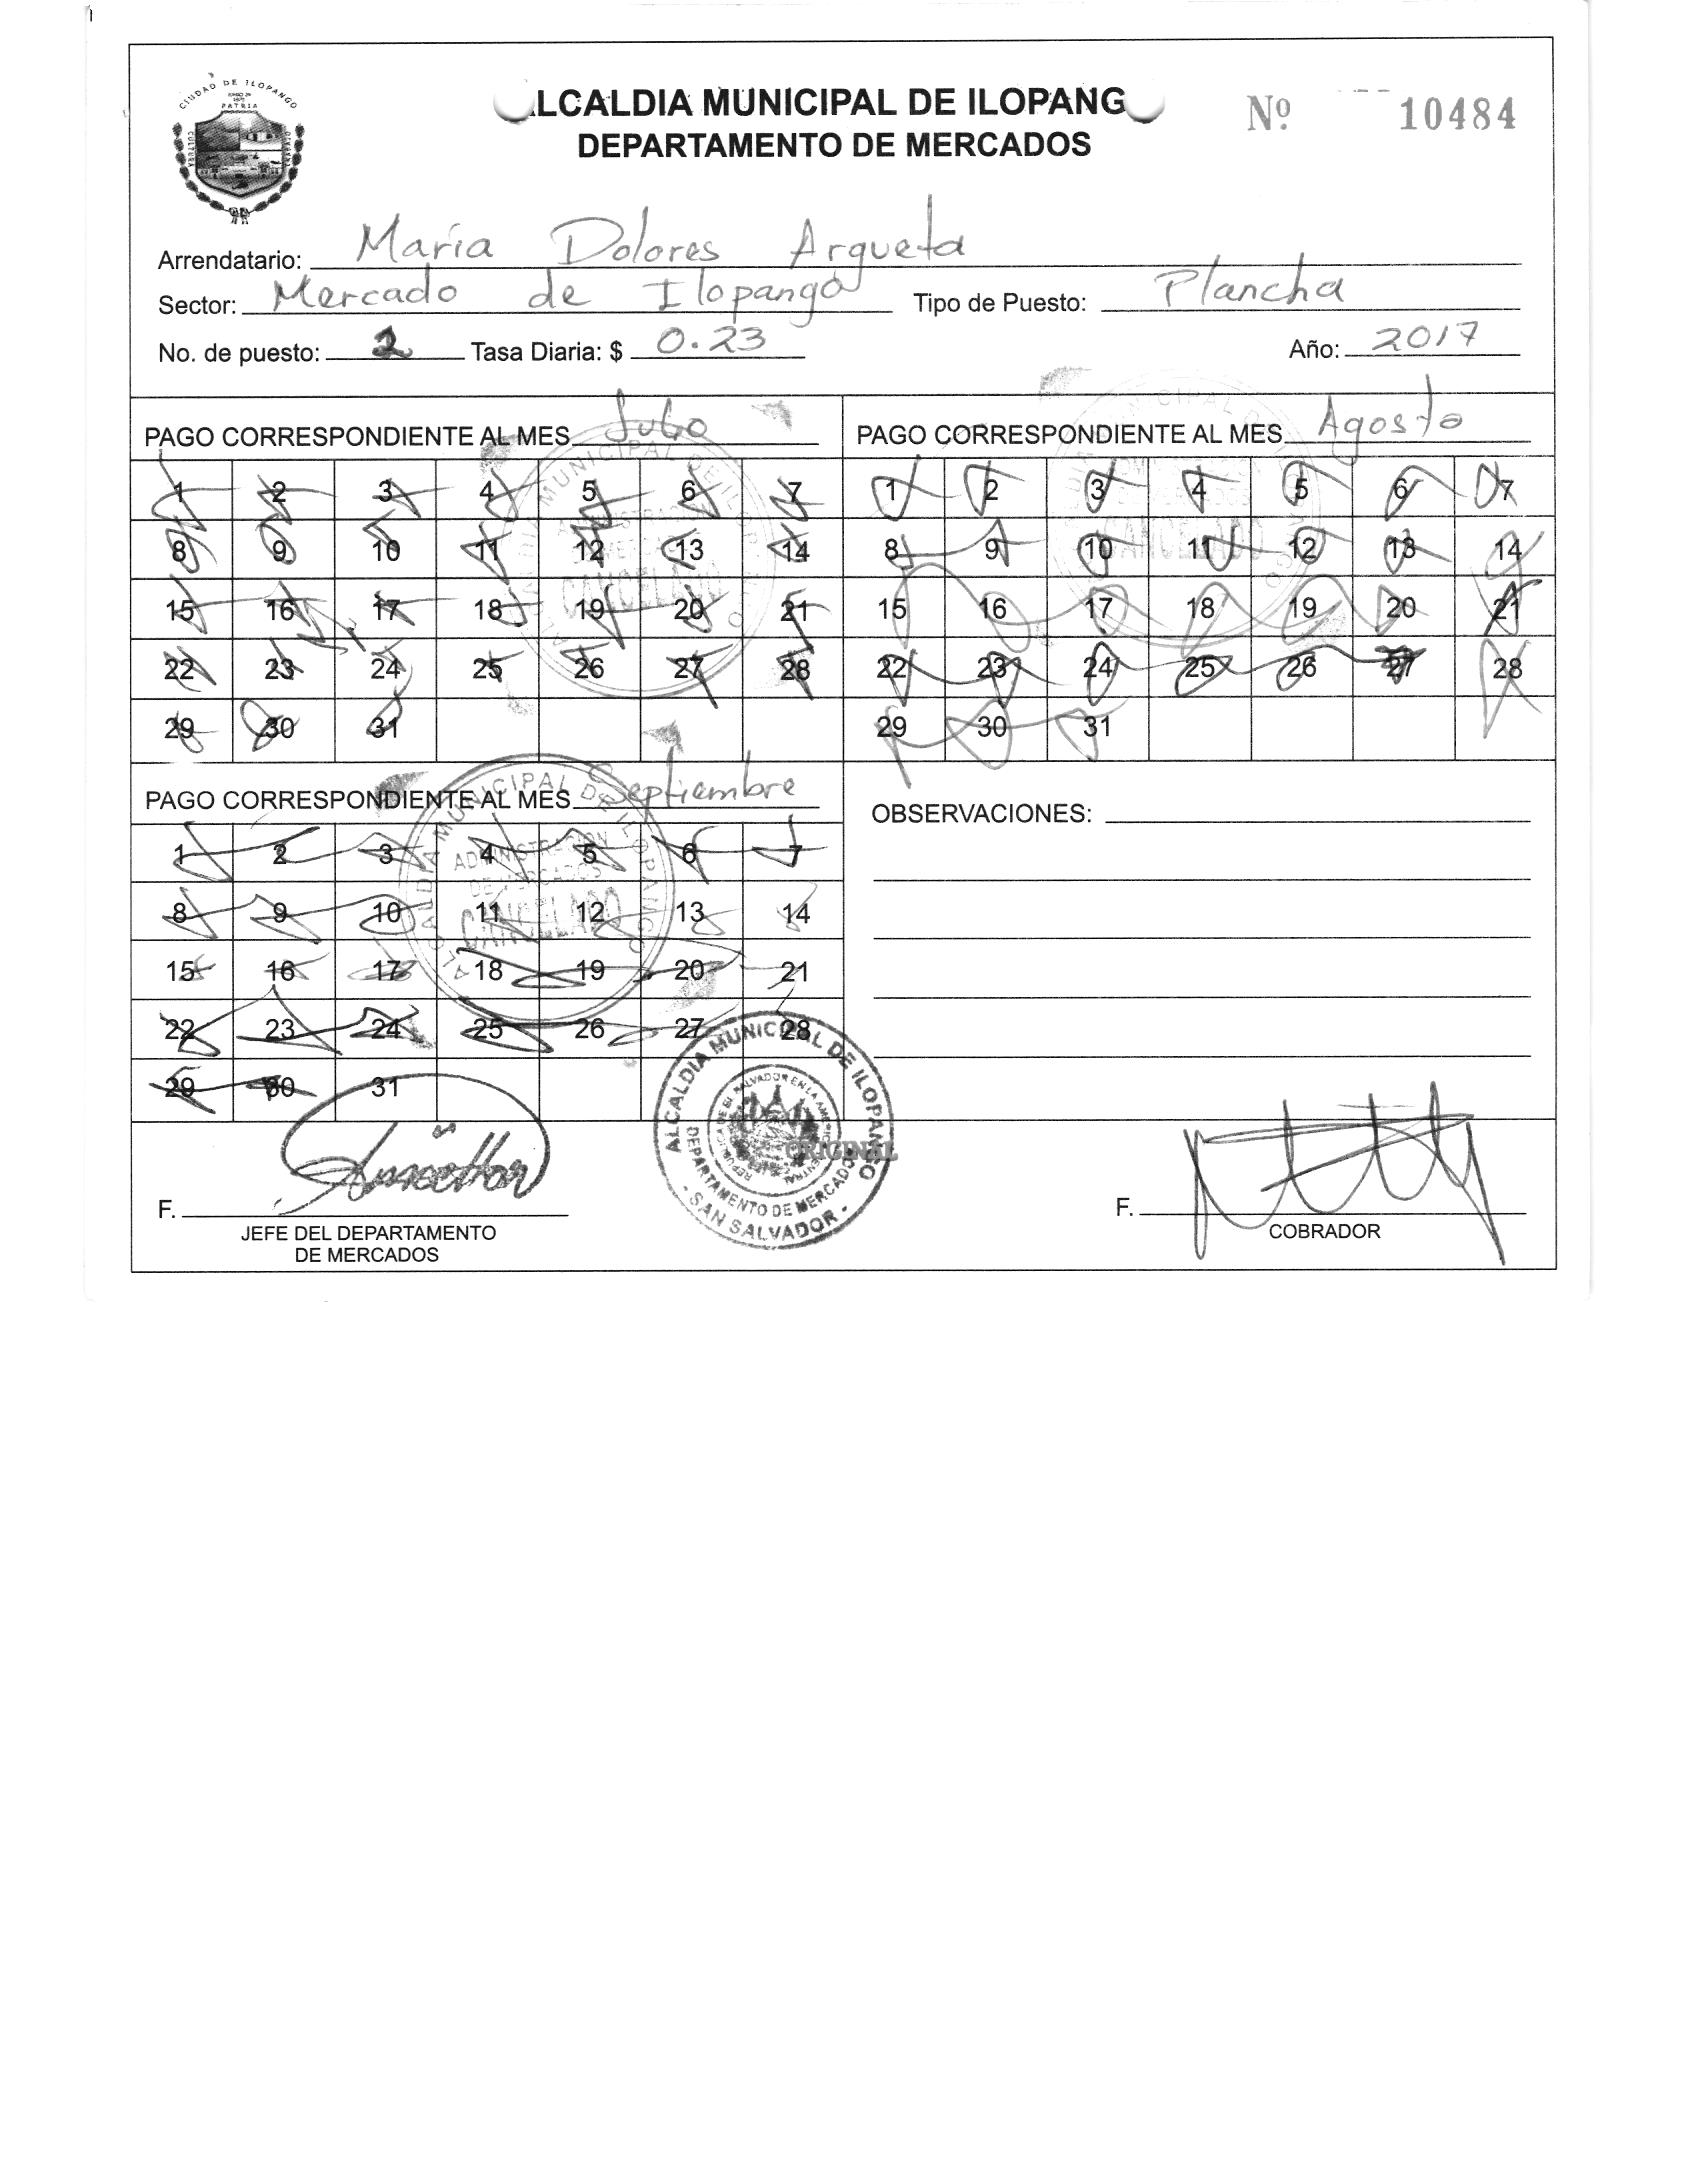 CIUDAD DE ILOPANGO
PATRIA
ALCALDIA MUNICIPAL DE ILOPANGO
DEPARTAMENTO DE MERCADOS
Nº 10484
Arrendatario: María Dolores Argueta
Sector: Mercado de Ilopango Tipo de Puesto: Plancha
No. de puesto: 2 Tasa Diaria: $ 0.23 Año: 2017
PAGO CORRESPONDIENTE AL MES Julio
1 2 3 4 5 6 7
8 9 10 11 12 13 14
15 16 17 18 19 20 21
22 23 24 25 26 27 28
29 30 31
PAGO CORRESPONDIENTE AL MES Agosto
1 2 3 4 5 6 7
8 9 10 11 12 13 14
15 16 17 18 19 20 21
22 23 24 25 26 27 28
29 30 31
PAGO CORRESPONDIENTE AL MES Septiembre
1 2 3 4 5 6 7
8 9 10 11 12 13 14
15 16 17 18 19 20 21
22 23 24 25 26 27 28
29 30 31
ALCALDIA MUNICIPAL DE ILOPANGO
ADMINISTRACION
DE MERCADOS
CANCELADO
OBSERVACIONES:
ALCALDIA MUNICIPAL DE ILOPANGO
DEPARTAMENTO DE MERCADOS
- SAN SALVADOR -
ORIGINAL
F.
JEFE DEL DEPARTAMENTO
DE MERCADOS
F.
COBRADOR